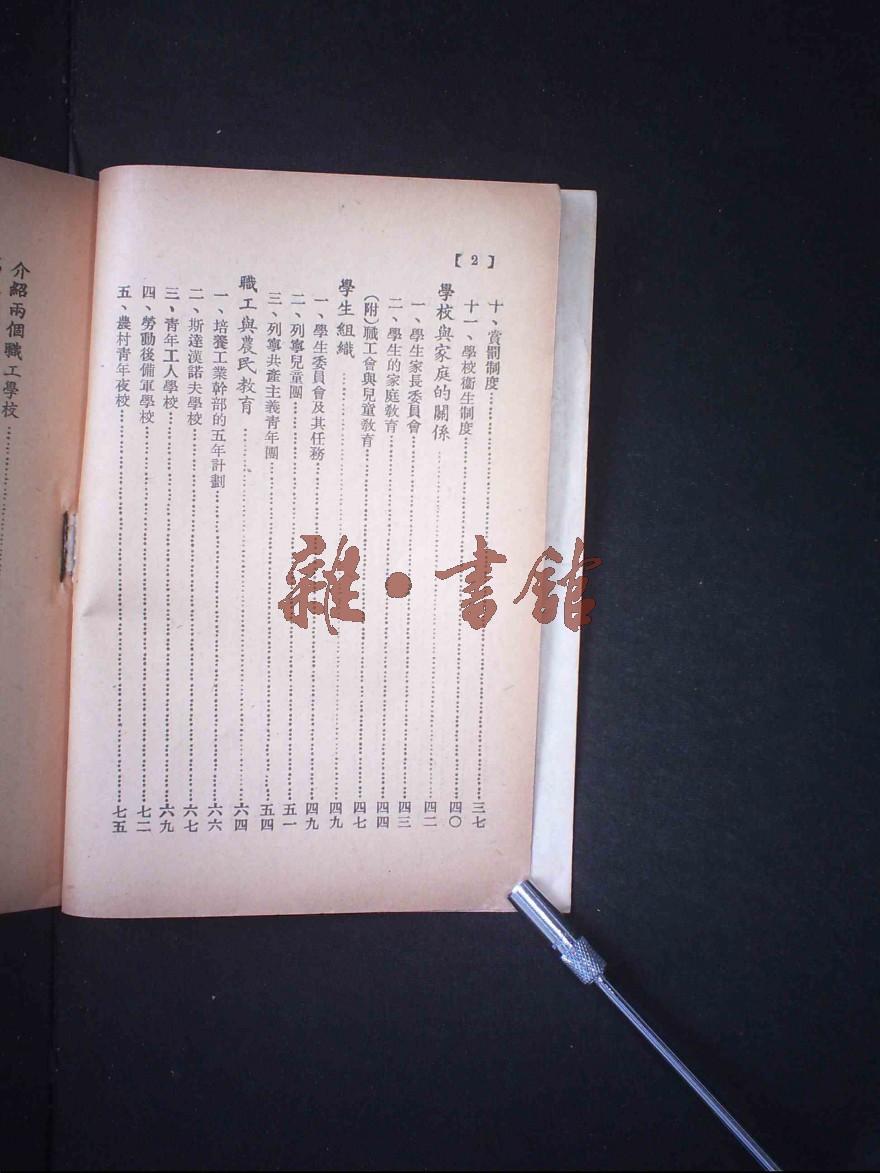 【2】
十、賞罰制度……三七
十一、學校衞生制度……四〇
學校與家庭的關係……四二
一、學生家長委員會……四三
二、學生的家庭敎育……四四
(附)職工會與兒童敎育……四七
學生組織……四九
一、學生委員會及其任務……四九
二、列寧兒童團……五一
三、列寧共產主義青年團……五四
職工與農民敎育……六四
一、培養工業幹部的五年計劃……六六
二、斯達漢諾夫學校……六七
三、青年工人學校……六九
四、勞動後備軍學校……七二
五、農村青年夜校……七五
介紹兩個職工學校……
雜·書館